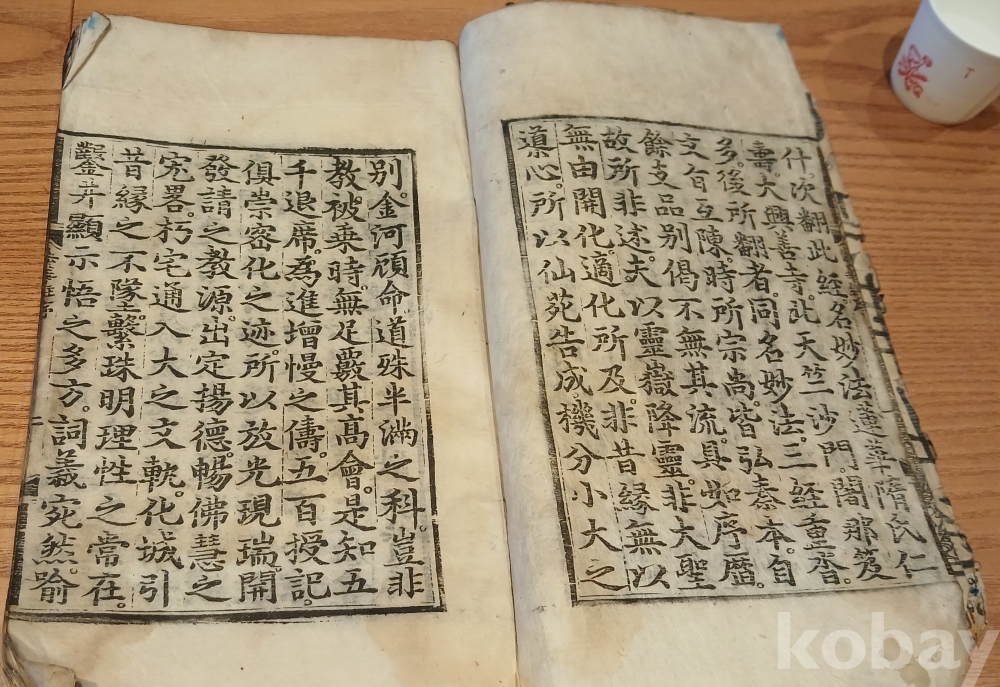 什次翻此經名妙法蓮華隋氏仁
壽。大興善寺。此天竺沙門。闍那笈
多。後所翻者。同名妙法。三經重沓。
文旨互陳。時所宗尚皆弘秦本。自
餘支品別偈不無其流。具如序曆。
故所非述。夫以靈嶽降靈。非大聖
無由開化。適化所及。非昔緣無以
導心。所以仙苑告成。機分小大之
別。金河顧命。道殊半滿之科。豈非
教被乘時。無足覈其高會。是知五
千退席。為進增慢之儔。五百授記。
俱崇密化之迹。所以放光現瑞。開
發請之教源。出定揚德。暢佛慧之
宏畧。朽宅通入大之文軌。化城引
昔緣之不墜。繫珠明理性之常在。
鑿井顯示悟之多方。詞義宛然。喻
kobay